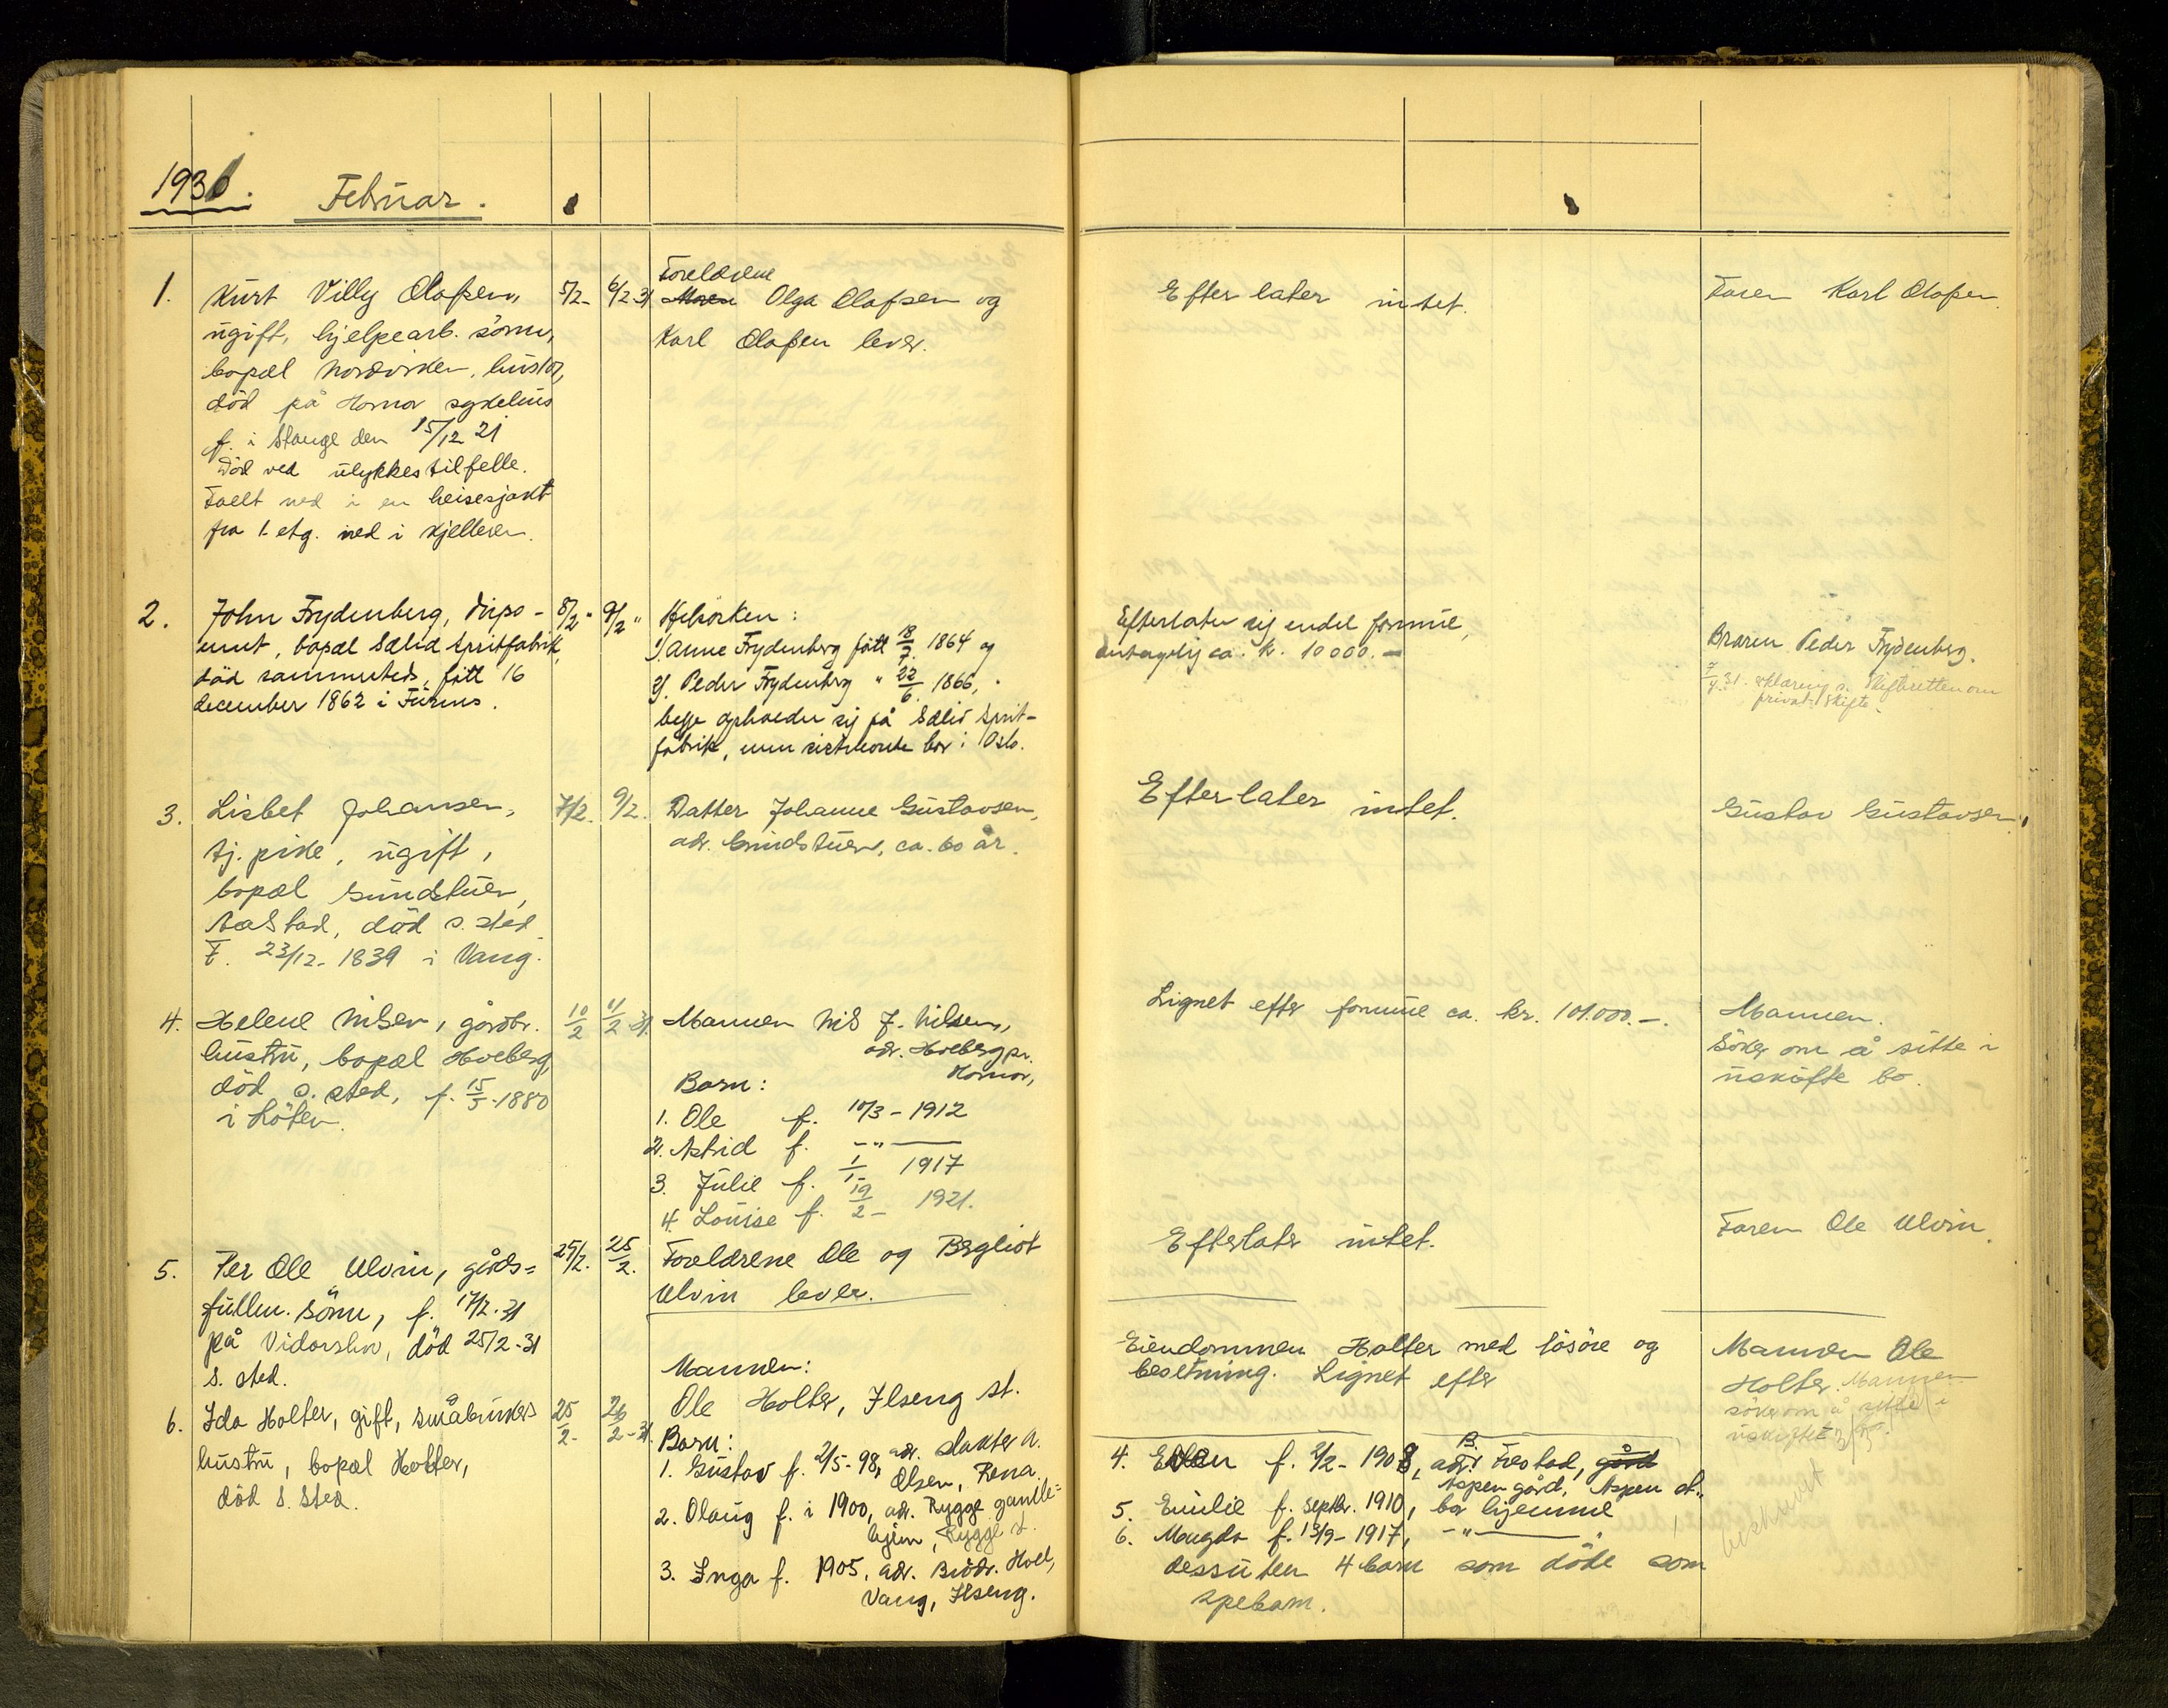 1931. Februar.
1. Kurt Villy Olafsen, 5/2- 6/2-31 Foreldrene
ugift, hjelpearb. sönn, Moren Olga Olafsen og
bopæl Nordviken, hustör, Karl Olafsen lever.
död på Hamar sykehus
f. i Stange den 15/12 21
Död ved ulykkestilfelle.
Faelt ned i en heisesjakt
fra 1. etg. ned i kjelleren.
Efterlater intet.
Faren Karl Olafsen.
2. John Frydenberg, dispo- 8/2 " 9/2 " 
nent, bopæl Sælid Spritfabrik,
död sammesteds, fött 16
december 1862 i Furnes.
1). Anne Frydenberg fött 18/7 1864 og
2). Peder Frydenberg " 22/6 1866,
begge opholder sig på Sælid Sprit-
fabrik, men sistnevnte bor i Oslo.
Efterlater sig endel formue,
antagelig ca. kr. 10000.-
Broren Peder Frydenberg.
erklæring fra Skifteretten om
privat skifte.
3. Lisbet Johansen, 7/2. 9/2. Datter Johanne Gustavsen,
tj. pike, ugift, adr. Grindstuen, ca. 60 år.
bopæl Grindstuen,
död s. sted.
F. 23/12- 1839 i Vang.
Efterlater intet.
Gustav Gustavsen.
4. Helene Nilsen, gårdbr. 10/2 11/2 31. Mannen Nils J. Nilsen,
hustru, bopæl Hveberg, adr. Hveberg pr.
död s. sted, f. 15/5-1880 Hamar,
i Löten.
Barn:
1. Ole f. 10/3 - 1912
2. Astrid f. -"-
3. Julie f. 1/1- 1917
4. Louise f. 19/2- 1921.
Lignet efter formue ca. kr. 101.000.-.
Mannen.
Söker om å sitte i
uskiftet bo.
5. Per Ole Ulvin, gårds= 25/2. 25/2. Foreldrene Ole og Bergliot
fullm. sönn, f. 17/2-31 Ulvin lever.
på Vidarshov, död 25/2-31
s. sted.
Efterlater intet.
Faren Ole Ulvin.
6. Ida Holter, gift, småbrukers 25/2- 26/2-31.
hustru, bopæl Holter,
död s. sted.
Mannen:
Ole Holter, Ilseng st.
Barn:
1. Gustav f. 2/5-98, adr. slakter A.
Olsen, Rena.
2. Olaug f. i 1900, adr. Rygge gamle=
hjem, Rygge st.
3. Inga f. 1905, adr. Brödr. Hoel,
Vang, Ilseng.
Eiendommen Holter med lösöre og
besetning. Lignet efter
4. Ellen f. 2/2- 1908, adr. B. Frestad, gård
Aspen gård, Aspen st.
5. Emilie f. septbr. 1910, bor hjemme
6. Magda f. 13/9- 1917, -"-
dessuten 4 barn som döde som
spebarn.
Mannen Ole
Holter. Mannen
söker om å sitte i
uskiftet